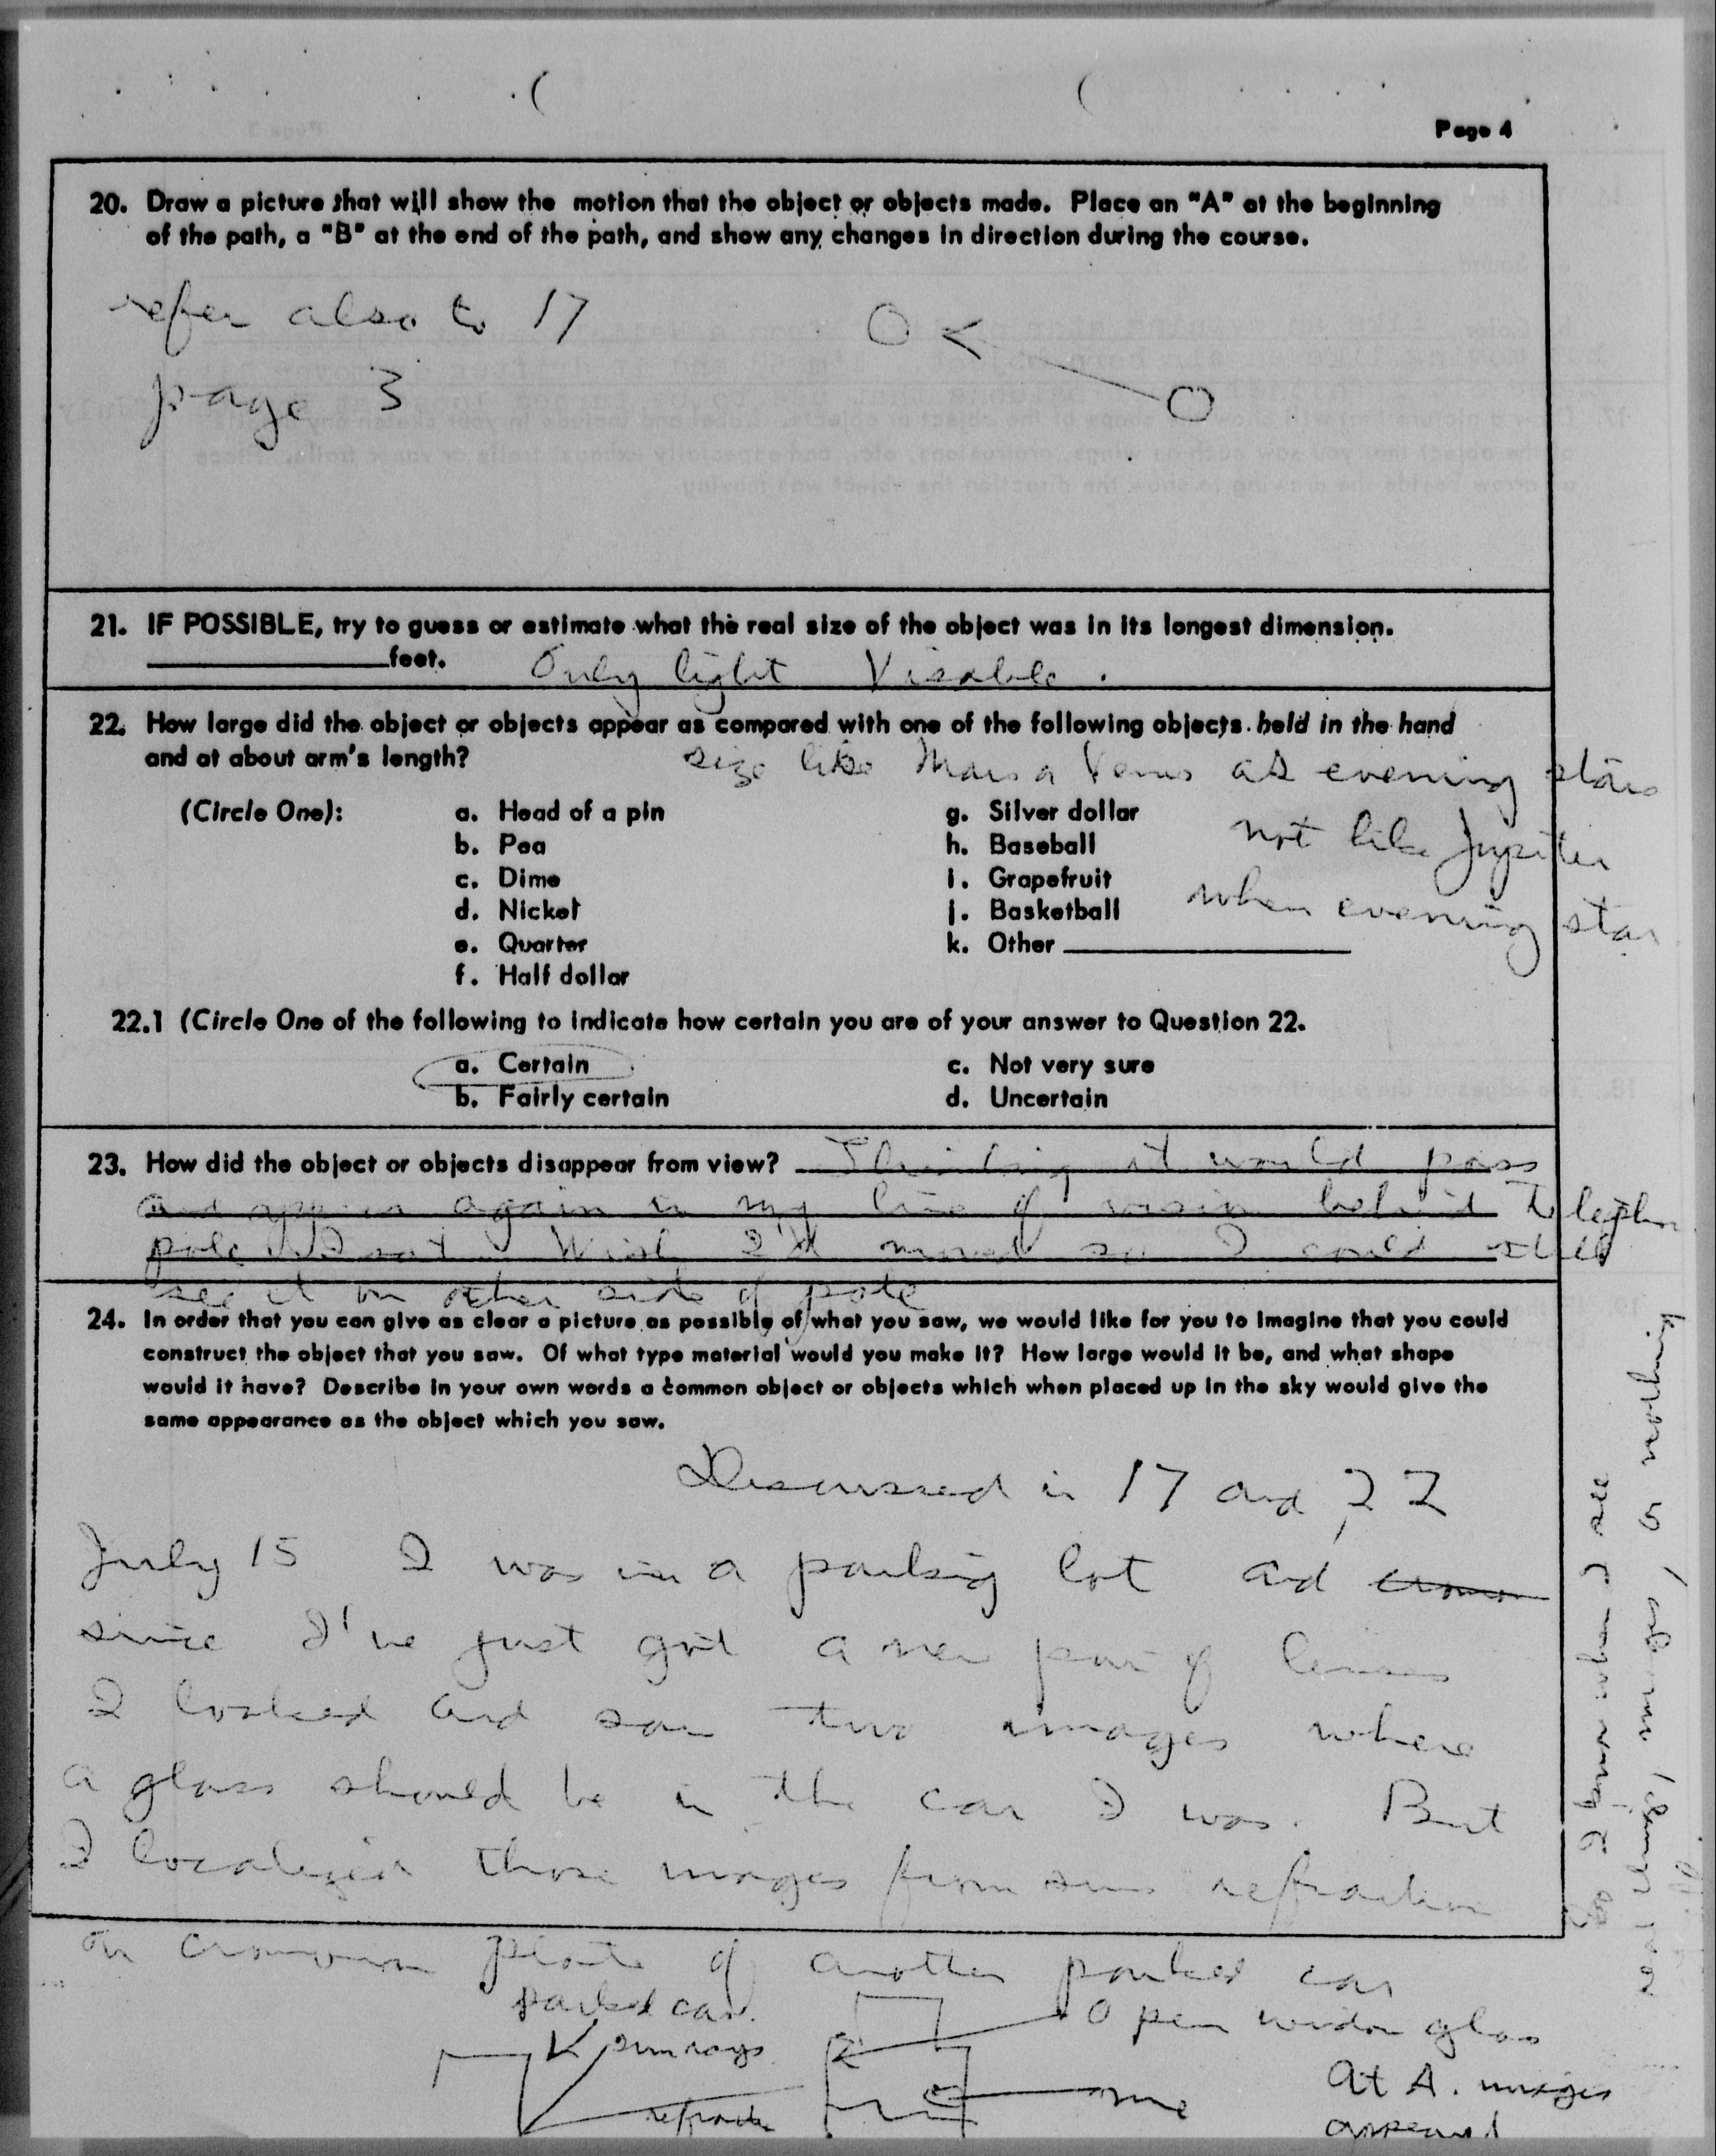 Page 4
20. Draw a picture that will show the motion that the object or objects made. Place an "A" at the beginning
of the path, a "B" at the end of the path, and show any changes in direction during the course.
refer also to 17
page 3
21. IF POSSIBLE, try to guess or estimate what the real size of the object was in its longest dimension.
____________feet. Only light Visable.
22. How large did the object or objects appear as compared with one of the following objects held in the hand
and at about arm's length? size like Mars or Venus as evening stars
(Circle One): a. Head of a pin g. Silver dollar not like Jupiter
b. Pea h. Baseball
c. Dime i. Grapefruit when evening star
d. Nickel j. Basketball
e. Quarter k. Other ____________
f. Half dollar
22.1 (Circle One of the following to indicate how certain you are of your answer to Question 22.
a. Certain c. Not very sure
b. Fairly certain d. Uncertain
23. How did the object or objects disappear from view? Thinking it would pass
and appear again in my line of vision behind
pole I sat. Wish I'd moved so I could still
see it on other side of pole
24. In order that you can give as clear a picture as possible of what you saw, we would like for you to imagine that you could
construct the object that you saw. Of what type material would you make it? How large would it be, and what shape
would it have? Describe in your own words a common object or objects which when placed up in the sky would give the
same appearance as the object which you saw.
Discussed in 17 and 22
July 15 I was in a parking lot and
since I've just got a new pair of lenses
I looked and saw two images where
a glass should be in the car I was. But
I localized those images from suns refraction
on plate of another parked car
parked car.
sun rays
Open window glass
me
At A. images
appeared
So I know when I see
real things, images, or nothing